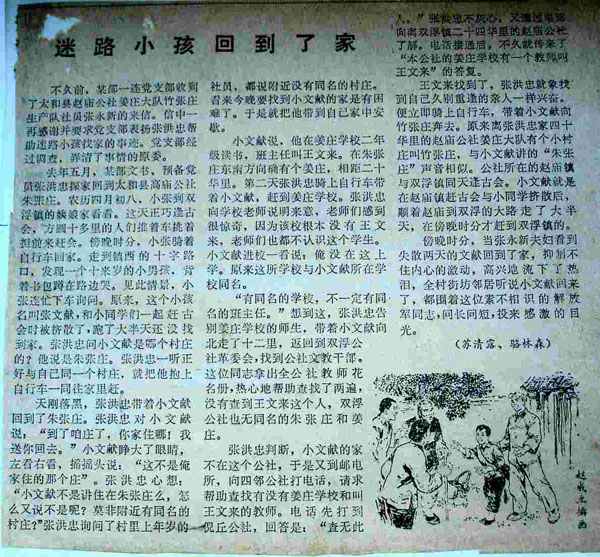 迷路小孩回到了家
不久前，某部一连党支部收到
了太和县赵庙公社姜庄大队竹张庄
生产队社员张永新的来信。信中一
再感谢并要求党支部表扬张洪忠帮
助迷路小孩找家的事迹。党支部经
过调查，弄清了事情的原委。
去年五月，某部文书，预备党
员张洪忠探家回到太和县高庙公社
朱张庄。农历四月初八，小张到双
浮镇的姨娘家看看。这天正巧逢古
会，方圆十多里的人们推着车挑着
担前来赶会。傍晚时分，小张骑着
自行车回家。走到镇西的十字路
口，发现一个十来岁的小男孩，背
着书包蹲在路边哭。见此情景，小
张连忙下车询问。原来，这个小孩
名叫张文献，和小同学们一起赶古
会时被挤散了，跑了大半天还没找
到家。张洪忠问小文献是哪个村庄
的？他说是朱张庄。张洪忠一听正
好与自己同一个村庄，就把他抱上
自行车一同往家里赶。
天刚落黑，张洪忠带着小文献
回到了朱张庄。张洪忠对小文献
说：“到了咱庄了，你家住哪？我
送你回去。”小文献睁大了眼睛，
左看右看，摇摇头说：“这不是俺
家住的那个庄”。张洪忠心想：
“小文献不是讲住在朱张庄么，怎
么又说不是呢？莫非附近有同名的
村庄？”张洪忠询问了村里上年岁的
社员，都说附近没有同名的村庄。
看来今晚要找到小文献的家是有困
难了。于是就把他带到自己家中安
歇。
小文献说，他在姜庄学校二年
级读书，班主任叫王文来。在朱张
庄东南方向确有个姜庄，相距二十
华里。第二天张洪忠骑上自行车带
着小文献，赶到姜庄学校。张洪忠
向学校老师说明来意，老师们感到
很惊奇，因为该校根本没有王文
来，老师们也都不认识这个学生。
小文献进校一看说：俺没在这上
学。原来这所学校与小文献所在学
校同名。
“有同名的学校，不一定有同名
的班主任。”想到这，张洪忠告
别姜庄学校的师生，带着小文献向
北走了十二里，返回到双浮公
社革委会，找到公社文教干部。
这位同志拿出全公社教师花
名册，热心地帮助查找了两遍，
没有查到王文来这个人，双浮
公社也无同名的朱张庄和姜
庄。
张洪忠判断，小文献的家
不在这个公社，于是又到邮电
所，向四邻公社打电话，请求
帮助查找有没有姜庄学校和叫
王文来的教师。电话先打到
倪丘公社，回答是：“查无此
人。”张洪忠不灰心，又通过电话
向离双浮镇二十四华里的赵庙公社
了解。电话接通后，不久就传来了
“本公社的姜庄学校有一个教师叫
王文来”的答复。
王文来找到了，张洪忠就象找
到自己久别重逢的亲人一样兴奋。
便立即骑上自行车，带着小文献向
竹张庄奔去。原来离张洪忠家四十
华里的赵庙公社姜庄大队有个小村
庄叫竹张庄，与小文献讲的“朱张
庄”声音相似。公社所在的赵庙镇
与双浮镇同天逢古会。小文献就是
在赵庙镇赶古会与小同学挤散后，
顺着赵庙到双浮的大路走了大半
天，在傍晚时分才赶到双浮镇的。
傍晚时分，当张永新夫妇看到
失散两天的文献回到了家，抑制不
住内心的激动，高兴地流下了热
泪，全村街坊邻居听说小文献回来
了，都围着这位素不相识的解放
军同志，问长问短，投来感激的目
光。
（苏清露、骆林森）